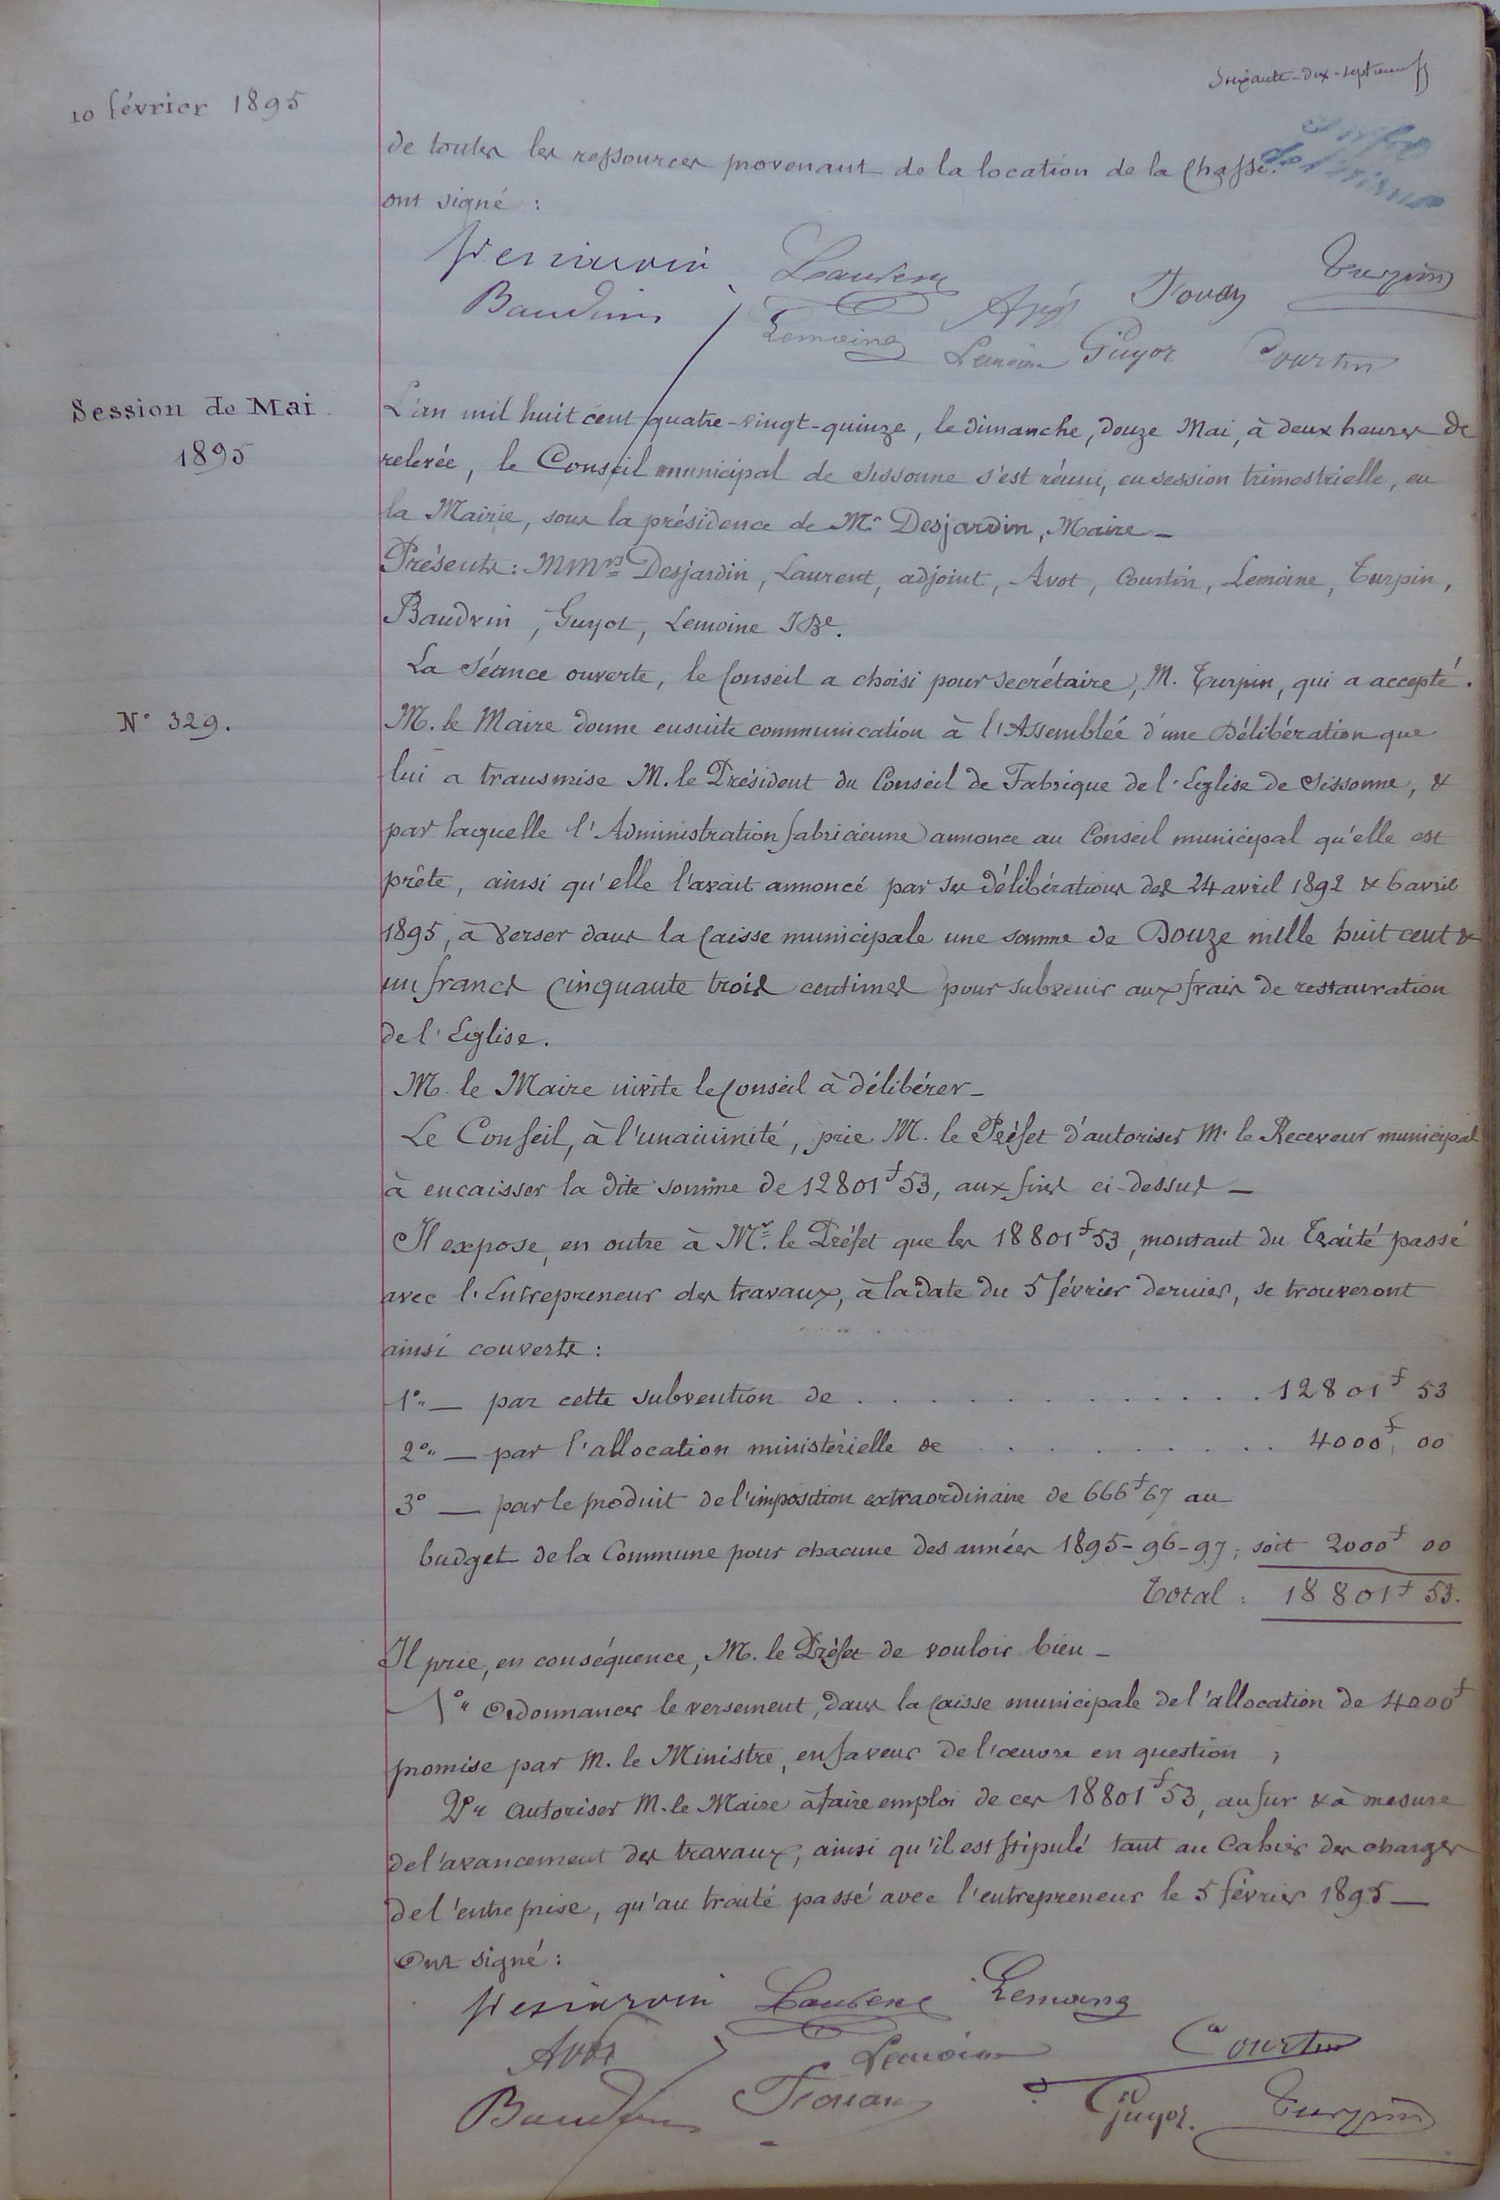 Soixante-dix-sept
10 février 1895
de toutes les ressources provenant de la location de la Chasse.
ont signé :
Desjardin Laurent Turpin
Baudvin Avot
Lemoine Lemoine Guyot Courtin
Session de Mai
1895
L'an mil huit cent quatre-vingt-quinze, le dimanche, douze Mai, à deux heures de
relevée, le Conseil municipal de Sissonne s'est réuni, en session trimestrielle, en
la Mairie, sous la présidence de Mr Desjardin, Maire _
Présents : MMrs Desjardin, Laurent, adjoint, Avot, Courtin, Lemoine, Turpin,
Baudvin, Guyot, Lemoine JBe.
La séance ouverte, le Conseil a choisi pour secrétaire, M. Turpin, qui a accepté.
N° 329.
M. le Maire donne ensuite communication à l'Assemblée d'une Délibération que
lui a transmise M. le Président du Conseil de Fabrique de l'Eglise de Sissonne, &
par laquelle l'Administration fabricienne annonce au Conseil municipal qu'elle est
prête, ainsi qu'elle l'avait annoncé par ses délibérations des 24 avril 1892 & 6 avril
1895, à verser dans la Caisse municipale une somme de Douze mille huit cent &
un francs cinquante trois centimes pour subvenir aux frais de restauration
de l'Eglise.
M. le Maire invite le Conseil à délibérer _
Le Conseil, à l'unanimité, prie M. le Préfet d'autoriser M. le Receveur municipal
à encaisser la dite somme de 12801f53, aux fins ci-dessus _
Il expose, en outre à Mr. le Préfet que les 18801f53, montant du Traité passé
avec l'Entrepreneur des travaux, à la date du 5 février dernier, se trouveront
ainsi couverts :
1°" — par cette subvention de . . . . . . . . . . . 12801f 53
2°" — par l'allocation ministérielle de . . . . . . . . 4000f, 00
3° — par le produit de l'imposition extraordinaire de 666f67 au
budget de la Commune pour chacune des années 1895-96-97; soit 2000f 00
Total : 18801f 53.
Il prie, en conséquence, M. le Préfet de vouloir bien _
1°" Ordonnancer le versement, dans la Caisse municipale de l'allocation de 4000f
promise par M. le Ministre, en faveur de l'œuvre en question ;
2°" Autoriser M. le Maire à faire emploi de ces 18801f53, au fur & à mesure
de l'avancement des travaux, ainsi qu'il est stipulé tant au Cahier des charges
de l'entreprise, qu'au traité passé avec l'entrepreneur le 5 février 1895 —
Ont signé :
Desjardin Laurent Lemoine
Avot Lemoine Courtin
Baudvin Guyot. Turpin